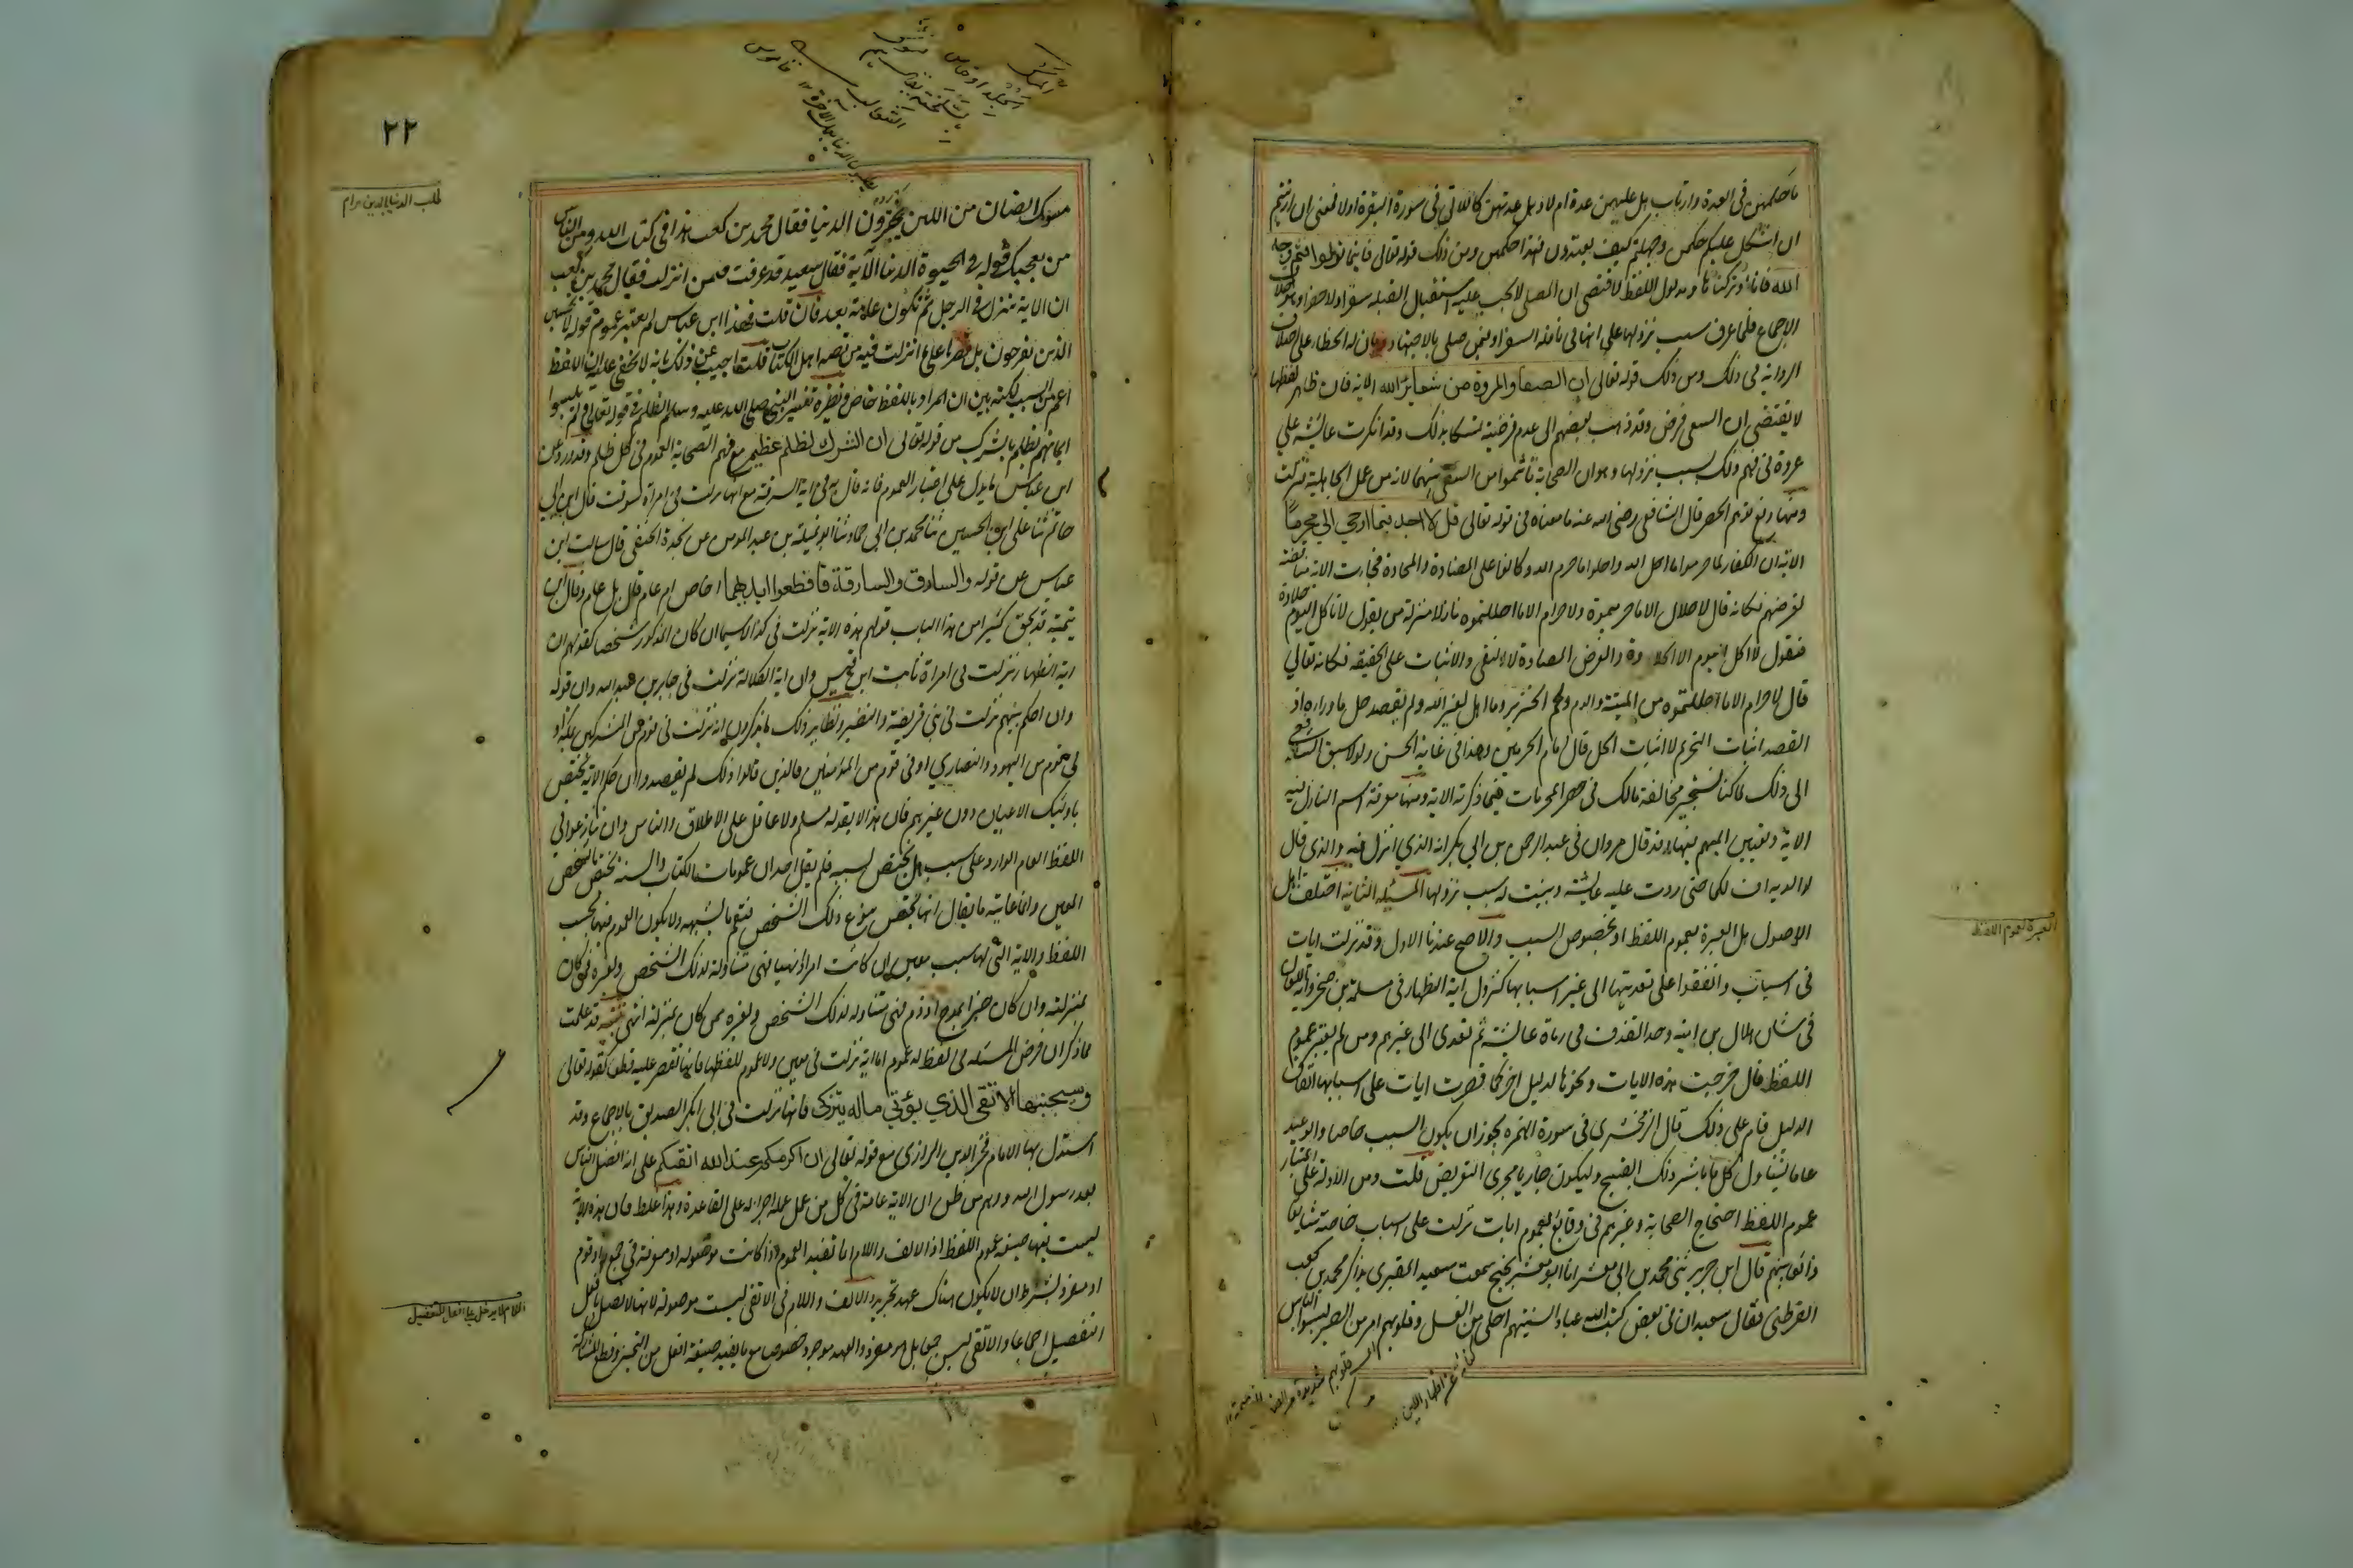 ما حكمهن في العدة وارتاب هل عليهن عدة ام لا وهل عدتهن كاللاتي في سورة البقرة او لا فمعنى ان ارتبتم
ان اشكل عليكم حكمهن وجهلتم كيف يعتدون فهذا حكمهن ومن ذلك قوله تعالى فاينما تولوا فثم وجه
الله فانا لو تركنا و مدلول اللفظ لاقتضى ان المصلي لا يجب عليه استقبال القبلة سفرا ولا حضرا وهو خلاف
الاجماع فلما عرف سبب نزولها علم انها في نافلة السفر او فيمن صلى بالاجتهاد وبان له الخطاء على اختلاف
الرواية في ذلك ومن ذلك قوله تعالى ان الصفا والمروة من شعائر الله الاية فان ظاهر لفظها
لا يقتضي ان السعي فرض وقد ذهب بعضهم الى عدم فرضيته تمسكا بذلك وقد انكرت عائشة على
عروة في فهم ذلك بسبب نزولها وهو ان الصحابة تأثموا من السعي بينهما لانه من عمل الجاهلية فنزلت
ومنها دفع توهم الحصر قال الشافعي رضي الله عنه ما معناه في قوله تعالى قل لا اجد فيما اوحي الي محرما
الاية ان الكفار لما حرموا ما احل الله واحلوا ما حرم الله وكانوا على المضادة والمحادة فجاءت الاية مناقضة
لغرضهم فكانه قال لا حلال الا ما حرمتموه ولا حرام الا ما احللتموه نازلا منزلة من يقول لا تأكل اليوم حلاوة
فتقول لا اكل اليوم الا الحلاوة والغرض المضادة لا النفي والاثبات على الحقيقة فكانه تعالى
قال لا حرام الا ما احللتموه من الميتة والدم ولحم الخنزير وما اهل لغير الله ولم يقصد حل ما وراءه اذ
القصد اثبات التحريم لا اثبات الحل قال امام الحرمين وهذا في غاية الحسن ولولا سبق الشافعي
الى ذلك لما كنا نستجيز مخالفة مالك في حصر المحرمات فيما ذكرته الاية ومنها معرفة اسم النازل فيه
الاية وتعيين المبهم فيها وقد قال مروان في عبد الرحمن بن ابي بكر انه الذي انزل فيه والذي قال
لوالديه اف لكما حتى ردت عليه عائشة وبينت له سبب نزولها المسئلة الثانية اختلف اهل
الاصول هل العبرة بعموم اللفظ او بخصوص السبب والاصح عندنا الاول وقد نزلت ايات
في اسباب واتفقوا على تعديتها الى غير اسبابها كنزول اية الظهار في سلمة بن صخر واية اللعان
في شان هلال بن امية وحد القذف في رماة عائشة ثم تعدى الى غيرهم ومن لم يعتبر عموم
اللفظ قال خرجت هذه الايات ونحوها لدليل اخر كما قصرت ايات على اسبابها اتفاقا
لدليل قام على ذلك قال الزمخشري في سورة الهمزة يجوز ان يكون السبب خاصا والوعيد
عاما ليتناول كل من باشر ذلك القبيح وليكون جاريا مجرى التعريض قلت ومن الادلة على اعتبار
عموم اللفظ احتجاج الصحابة وغيرهم في وقائع بعموم ايات نزلت على اسباب خاصة شائعا
ذائعا بينهم قال ابن جرير ثني محمد بن ابي معشر انا ابو معشر نجيح سمعت سعيد المقبري يذاكر محمد بن كعب
القرظي فقال سعيد ان في بعض كتب الله عبادا السنتهم احلى من العسل وقلوبهم امر من الصبر لبسوا لباس
العبرة لعموم اللفظ
كناية عن اظهار اللين
٢٢
مسوك الضان من اللين يجترون الدنيا فقال محمد بن كعب هذا في كتاب الله ومن الناس
من يعجبك قوله في الحيوة الدنيا الآية فقال سعيد قد عرفت فيمن انزلت فقال محمد بن كعب
ان الاية تنزل في الرجل ثم تكون عامة بعد فان قلت فهذا ابن عباس لم يعتبر عموم قوله لا تحسبن
الذين يفرحون بل قصرها على ما انزلت فيه من قصة اهل الكتاب قلت اجيب عن ذلك بانه لا يخفى عليه ان اللفظ
اعم من السبب لكنه بين ان المراد باللفظ خاص ونظيره تفسير النبي صلى الله عليه وسلم الظلم في قوله تعالى ولم يلبسوا
ايمانهم بظلم بالشرك من قوله تعالى ان الشرك لظلم عظيم مع فهم الصحابة العموم في كل ظلم وقد ورد عن
ابن عباس ما يدل على اعتبار العموم فانه قال به في اية السرقة مع انها نزلت في امراة سرقت قال ابن ابي
حاتم ثنا علي بن الحسين ثنا محمد بن ابي حماد ثنا ابو ثميلة بن عبد المومن عن نجدة الحنفي قال سالت ابن
عباس عن قوله والسارق والسارقة فاقطعوا ايديهما اخاص ام عام قال بل عام وقال ابن
تيمية قد يجئ كثيرا من هذا الباب قولهم هذه الاية نزلت في كذا لا سيما ان كان المذكور شخصا كقولهم ان
اية الظهار نزلت في امراة ثابت ابن قيس وان اية الكلالة نزلت في جابر بن عبد الله وان قوله
وان احكم بينهم نزلت في بني قريظة والنضير ونظاير ذلك مما يذكرون انه نزلت في قوم من المشركين بمكة او
في قوم من اليهود والنصارى او في قوم من المؤمنين فالذين قالوا ذلك لم يقصدوا ان حكم الاية يختص
باولئك الاعيان دون غيرهم فان هذا لا يقوله مسلم ولا عاقل على الاطلاق والناس وان تنازعوا في
اللفظ العام الوارد على سبب هل يختص بسببه فلم يقل احد ان عمومات الكتاب والسنة تختص بالشخص
المعين وانما غاية ما يقال انها تختص بنوع ذلك الشخص فتعم ما يشبهه ولا يكون العموم فيها بحسب
اللفظ والاية التي لها سبب معين ان كانت امرا او نهيا فهي متناولة لذلك الشخص ولغيره ممن كان
بمنزلته وان كان خبرا بمدح او ذم فهي متناولة لذلك الشخص ولغيره ممن كان بمنزلته انتهى تنبيه قد علمت
مما ذكر ان فرض المسئلة في لفظ له عموم اما اية نزلت في معين ولا عموم للفظها فانها تقصر عليه قطعا كقوله تعالى
وسيجنبها الاتقى الذي يؤتي ماله يتزكى فانها نزلت في ابي بكر الصديق بالاجماع وقد
استدل بها الامام فخر الدين الرازي مع قوله تعالى ان اكرمكم عند الله اتقىكم على انه افضل الناس
بعد رسول الله ووهم من ظن ان الاية عامة في كل من عمل عمله اجراء له على القاعدة وهذا غلط فان هذه الاية
ليست فيها صيغة عموم اللفظ اذ الالف واللام انما تفيد العموم اذا كانت موصولة او معرفة في جمع زاد قوم
او مفرد بشرط ان لا يكون هناك عهد والالف واللام في الاتقى ليست موصولة لانها لا توصل بافعل
التفضيل اجماعا والاتقى ليس جمعا بل هو مفرد والعهد موجود خصوصا مع ما يفيد صيغة افعل من التمييز وقطع المشاركة
طلب الدنيا بالدين حرام
اللام لا يدخل على افعل التفضيل